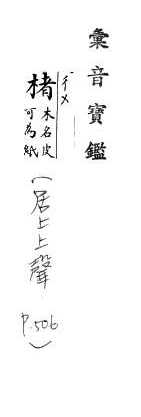 彙音寶鑑
楮
木名皮
可為紙
(居上上聲
P.506)